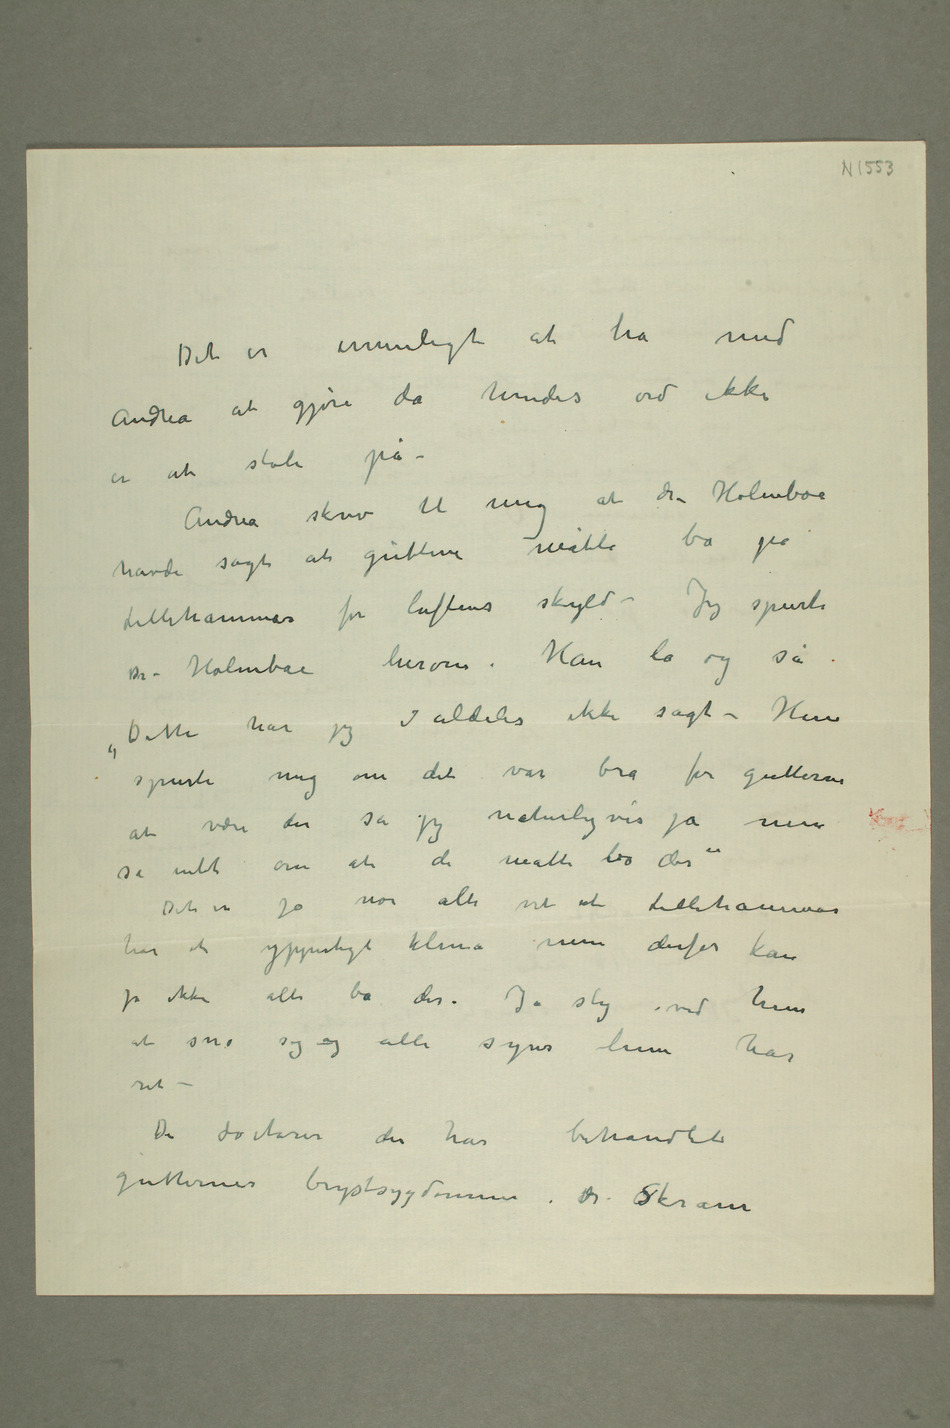 N 1553
Det er umuligt at ha med
Andrea at gjøre da hendes ord ikke
er at stole på –
Andrea skrev til mig at dr. Holmboe
havde sagt at guttene måtte bo på
Lillehammer for luftens skyld – Jeg spurte
Dr. Holmboe herom. Han lo og sa.
„Dette har jeg aldeles ikke sagt – Hun
spurte mig om det var bra for gutterne
at være der sa jeg naturligvis ja men
sa intet om at de måtte bo der“
Det er jo noe alle vet at Lillehammer
har et ypperligt klima men derfor kan
jo ikke alle bo der. Ja slig ved hun
at sno sig og alle synes hun har
ret –
De doctorer der har behandlet
gutternes brystsygdomme. dr. Skram